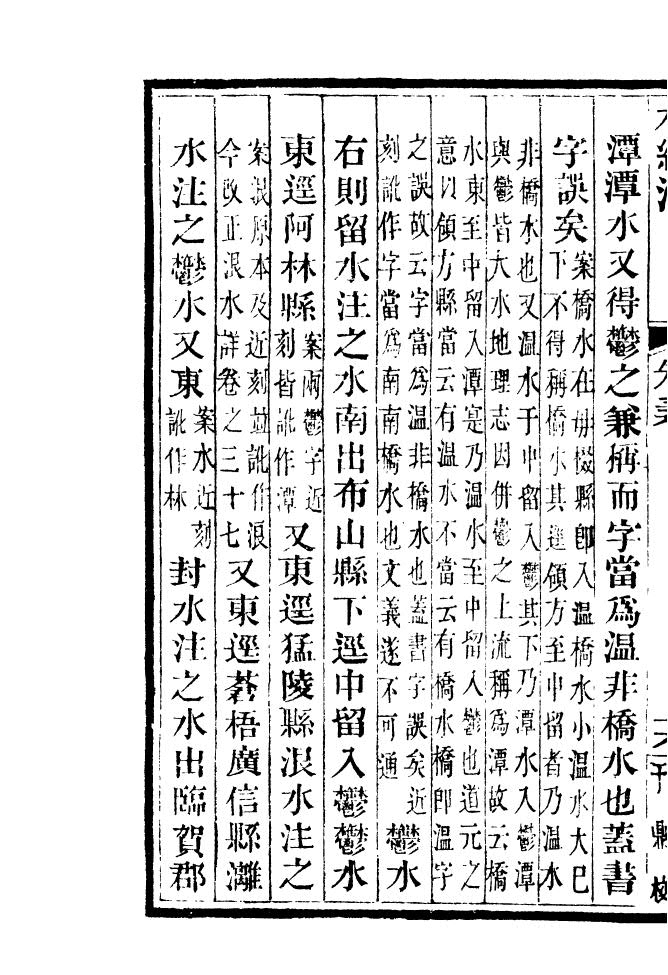 潭潭水又得鬱之兼稱而字當爲温非橋水也蓋書
字誤矣案橋水在毋棳縣卽入温橋水小温水大巳下不得稱橋水其逕領方至中留者乃温水
非橋水也又温水于中留入鬱其下乃潭水入鬱潭與鬱皆大水地理志因併鬱之上流稱爲潭故云橋
水東至中留入潭寔乃温水至中留入鬱也道元之意以領方縣當云有温水不當云有橋水橋卽温字
之誤故云字當爲温非橋水也蓋書字誤矣近刻訛作字當爲南南橋水也文義遂不可通 鬱水
右則留水注之水南出布山縣下逕中留入鬱鬱水
東逕阿林縣案兩鬱字近刻皆訛作潭又東逕猛陵縣浪水注之
案浪原本及近刻並訛作浪今改正浪水詳卷之三十七又東逕蒼梧廣信縣灕
水注之鬱水又東案水近刻訛作林封水注之水出臨賀郡